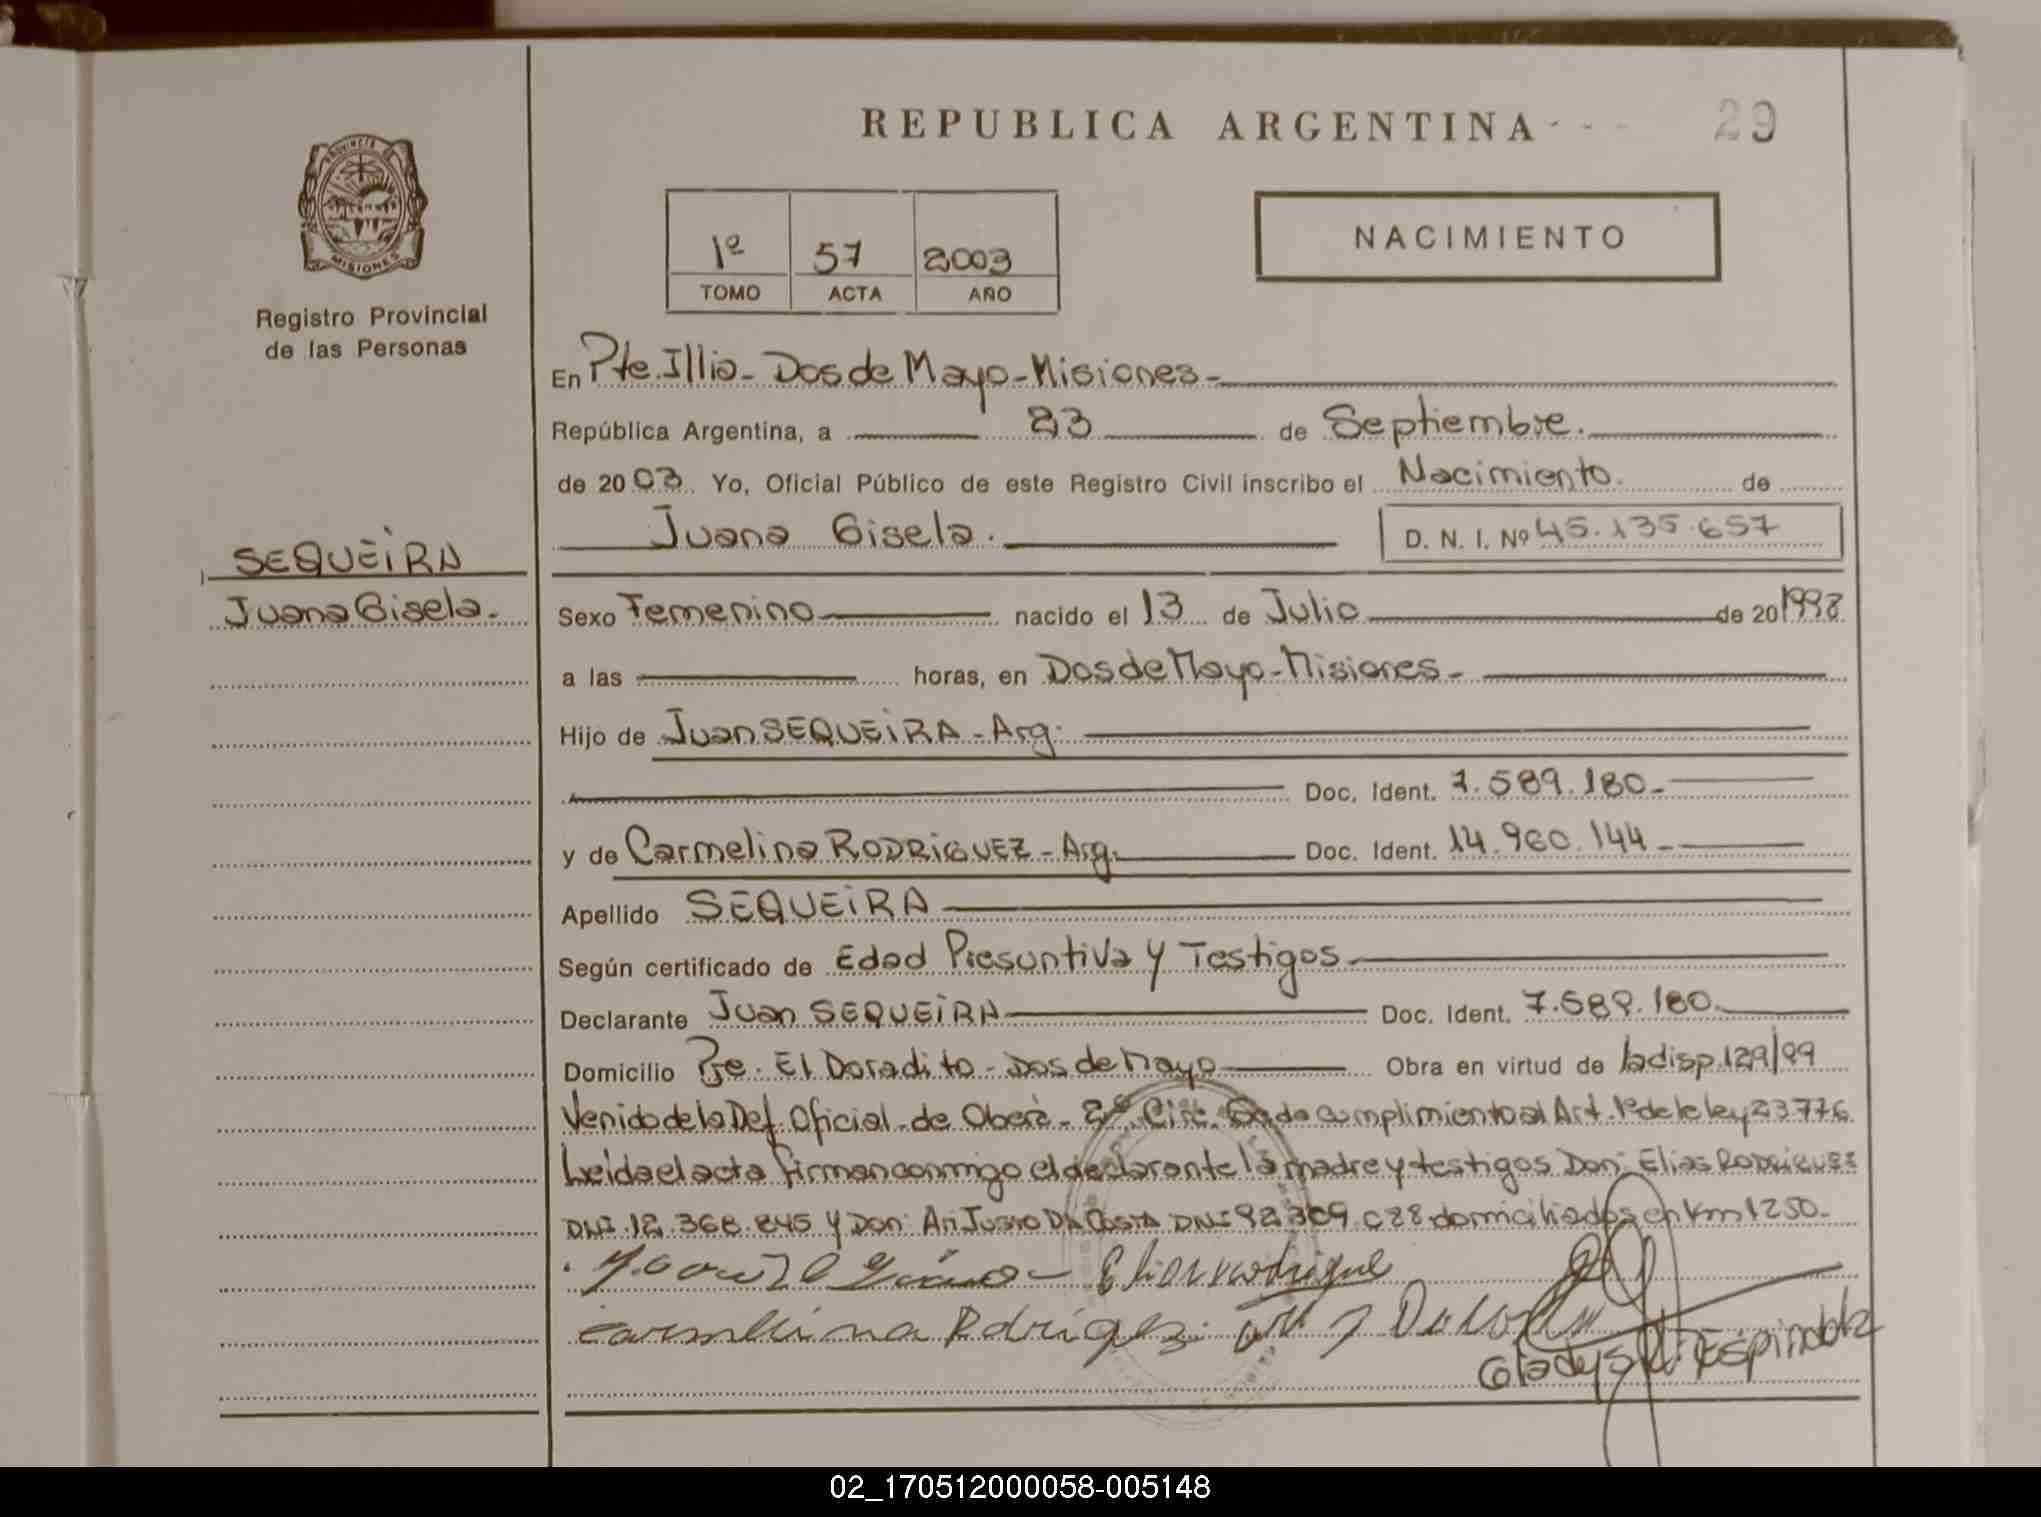 REPUBLICA ARGENTINA - - - 29
PROVINCIA DE
MISIONES
Registro Provincial
de las Personas
1º 57 2003
TOMO ACTA AÑO
NACIMIENTO
En Pte. Illia - Dos de Mayo - Misiones -
República Argentina, a 23 de Septiembre.
de 2003. Yo, Oficial Público de este Registro Civil inscribo el Nacimiento. de
Juana Gisela. D. N. I. Nº 45.135.657
SEQUEiRA
Juana Gisela.
Sexo Femenino nacido el 13 de Julio de 20 1998.
a las horas, en Dos de Mayo - Misiones -
Hijo de Juan SEQUEiRA - Arg.
Doc. Ident. 7.589.180 -
y de Carmelina RODRiGUEZ - Arg. Doc. Ident. 14.960.144 -
Apellido SEQUEiRA
Según certificado de Edad Presuntiva y Testigos
Declarante Juan SEQUEiRA Doc. Ident. 7.589.180
Domicilio Pje. El Doradito - Dos de Mayo Obra en virtud de la disp. 129/99
Venido de la Def. Oficial de Oberá - 2º Circ. Dado cumplimiento al Art. 1º de la ley 23.776
Leída el acta firman conmigo el declarante la madre y testigos Don: Elias RODRiGUEZ
DNI. 12.368.845 y Don: Ari Justo Da Costa DNI 92.309.028 domiciliados en Km 1250.
Elias rodrigue
carmelina Rdrigez
Gladys Espindola
02_170512000058-005148